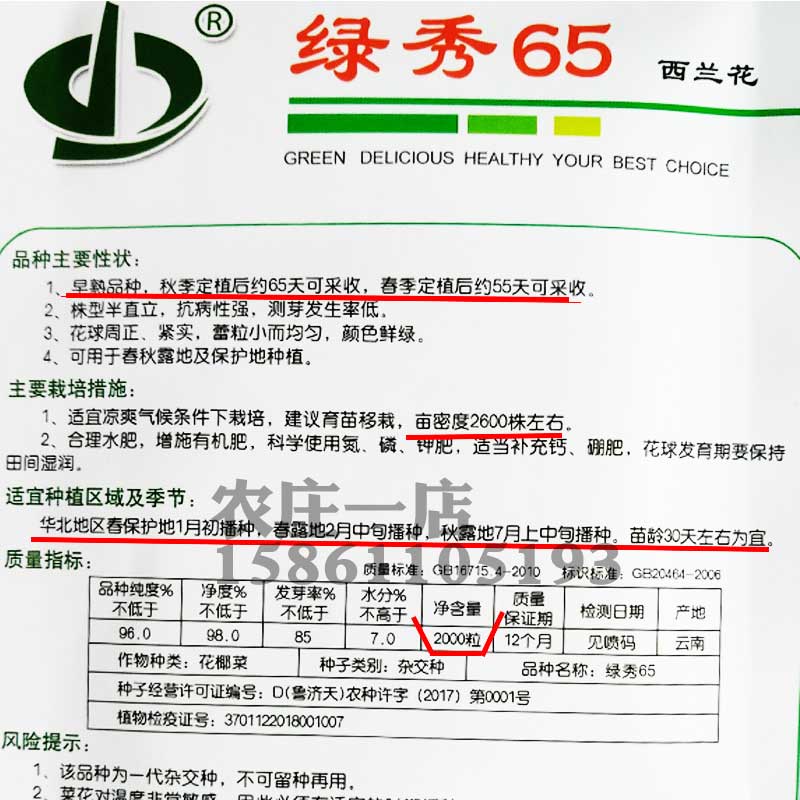 ®
绿秀65 西兰花
GREEN DELICIOUS HEALTHY YOUR BEST CHOICE
品种主要性状：
1、早熟品种，秋季定植后约65天可采收，春季定植后约55天可采收。
2、株型半直立，抗病性强，测芽发生率低。
3、花球周正、紧实，蕾粒小而均匀，颜色鲜绿。
4、可用于春秋露地及保护地种植。
主要栽培措施：
1、适宜凉爽气候条件下栽培，建议育苗移栽，亩密度2600株左右。
2、合理水肥，增施有机肥，科学使用氮、磷、钾肥，适当补充钙、硼肥，花球发育期要保持
田间湿润。
适宜种植区域及季节：
农庄一店
华北地区春保护地1月初播种，春露地2月中旬播种，秋露地7月上中旬播种。苗龄30天左右为宜。
15861105193
质量指标：
质量标准：GB16715.4-2010 标识标准：GB20464-2006
品种纯度%不低于 净度%不低于 发芽率%不低于 水分%不高于 净含量 质量保证期 检测日期 产地
96.0 98.0 85 7.0 2000粒 12个月 见喷码 云南
作物种类：花椰菜 种子类别：杂交种 品种名称：绿秀65
种子经营许可证编号：D(鲁济天)农种许字（2017）第0001号
植物检疫证号：3701122018001007
风险提示：
1、该品种为一代杂交种，不可留种再用。
2、菜花对温度非常敏感，因此必须在适宜的